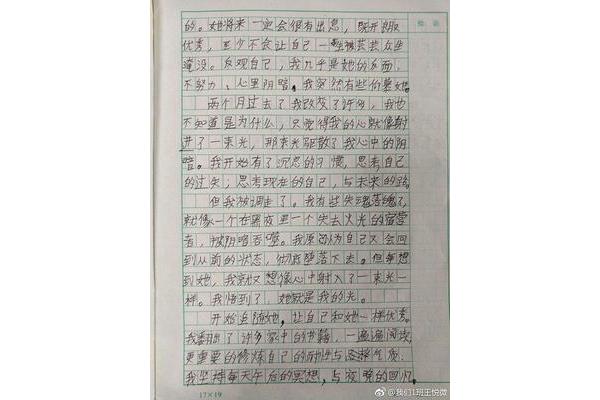 的。她将来一定会很有出息，既开朗又
优秀，至少不会让自己一生被芸芸众生
淹没。反观自己，我几乎是她的反面，
不努力、心里阴暗。我突然有些仰慕她。
两个月过去了我改变了许多，我也
不知道是为什么，只觉得我的心就像射
进了一束光，那束光驱散了我心中的阴
暗。我开始有了沉思的习惯，思考自己
的过失，思考现在的自己，与未来的路。
但我被调走了。我有些失魂落魄了，
就像一个在黑夜里一个失去火光的宿营
者，被阴暗吞噬。我原以为自己又会回
到从前的状态，彻底堕落下去。但每想
到她，我就又想像心中射入了一束光一
样。我悟到了，她就是我的光。
开始追随她，让自己和她一样优秀。
我翻出了许多家中的书籍，一遍遍阅读，
更重要的修炼自己的耐性与
我坚持每天午后的冥想，与夜晚的回忆，
17×19
@我们1班王悦微